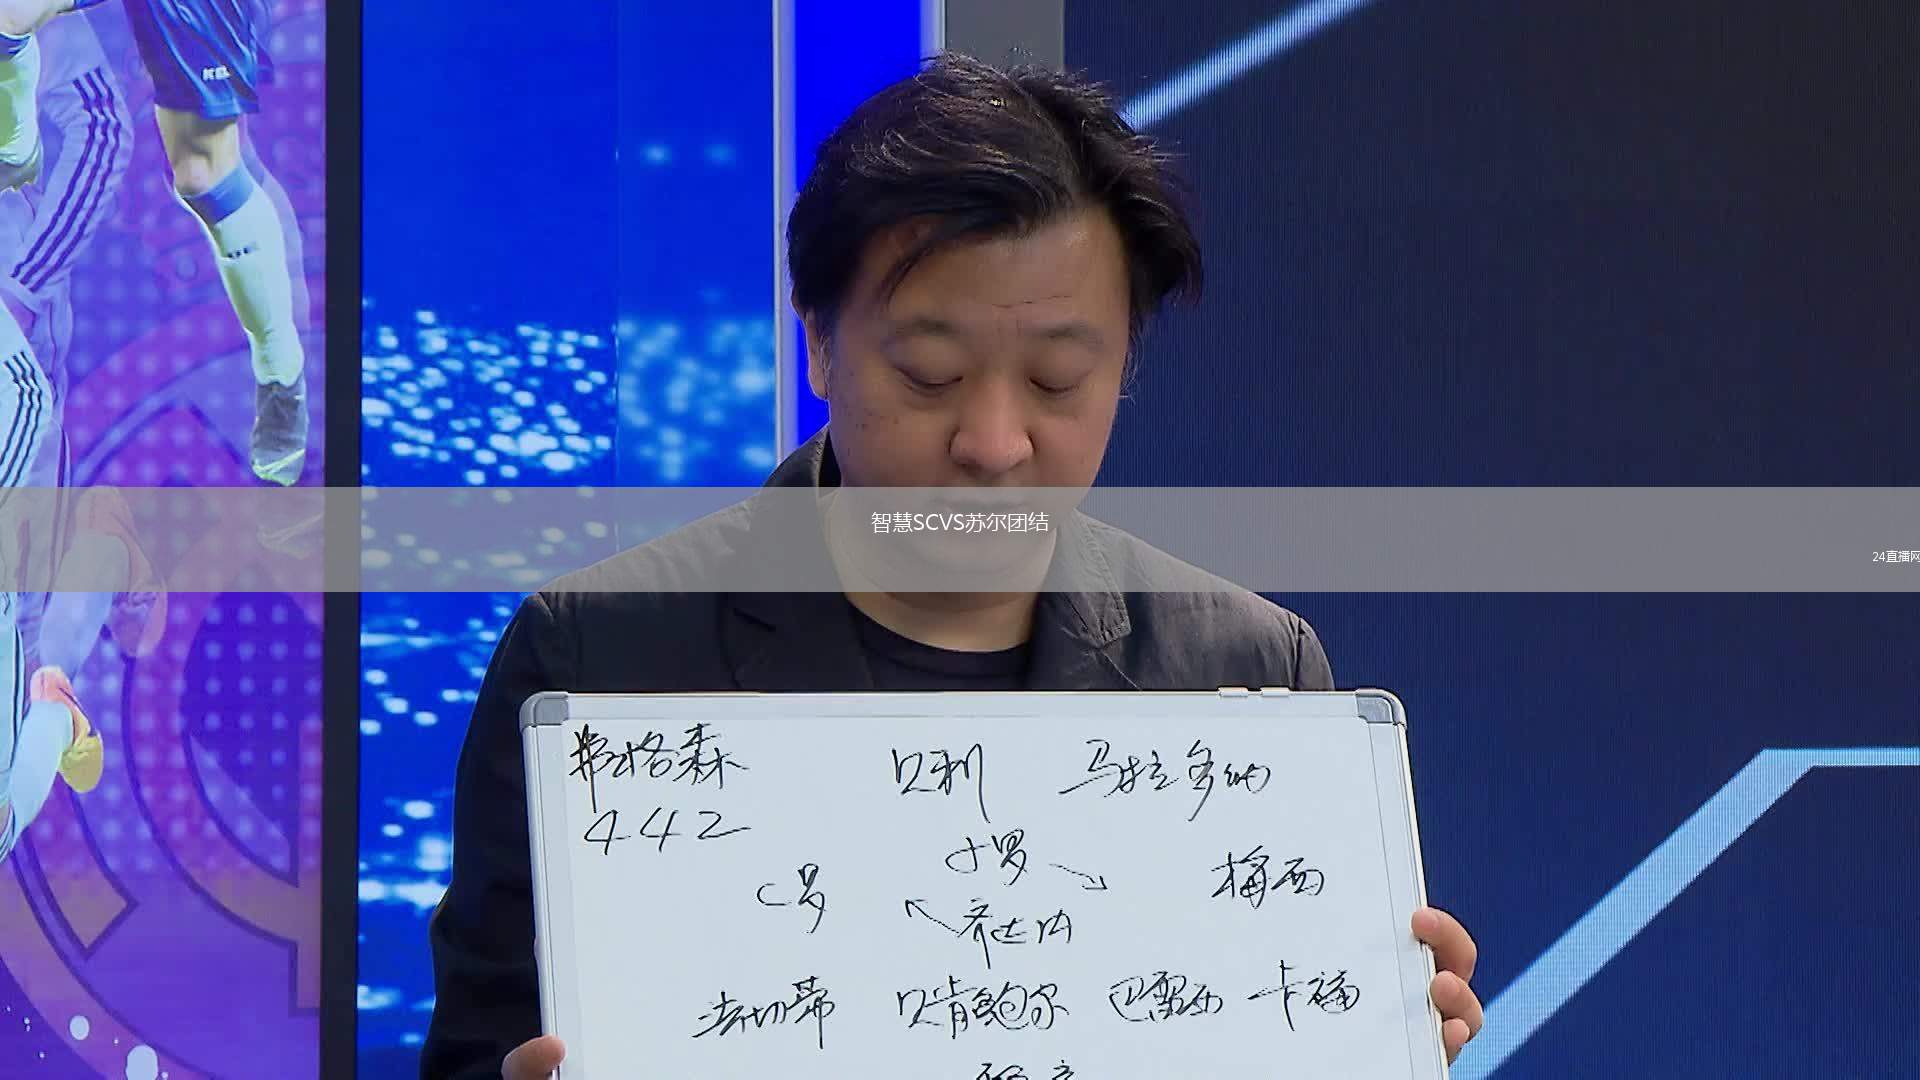 KEL
智慧SCVS苏尔团结
24直播网
弗格森 贝利 马拉多纳
442
小罗
C罗 梅西
齐达内
法切蒂 贝肯鲍尔 巴雷西 卡福